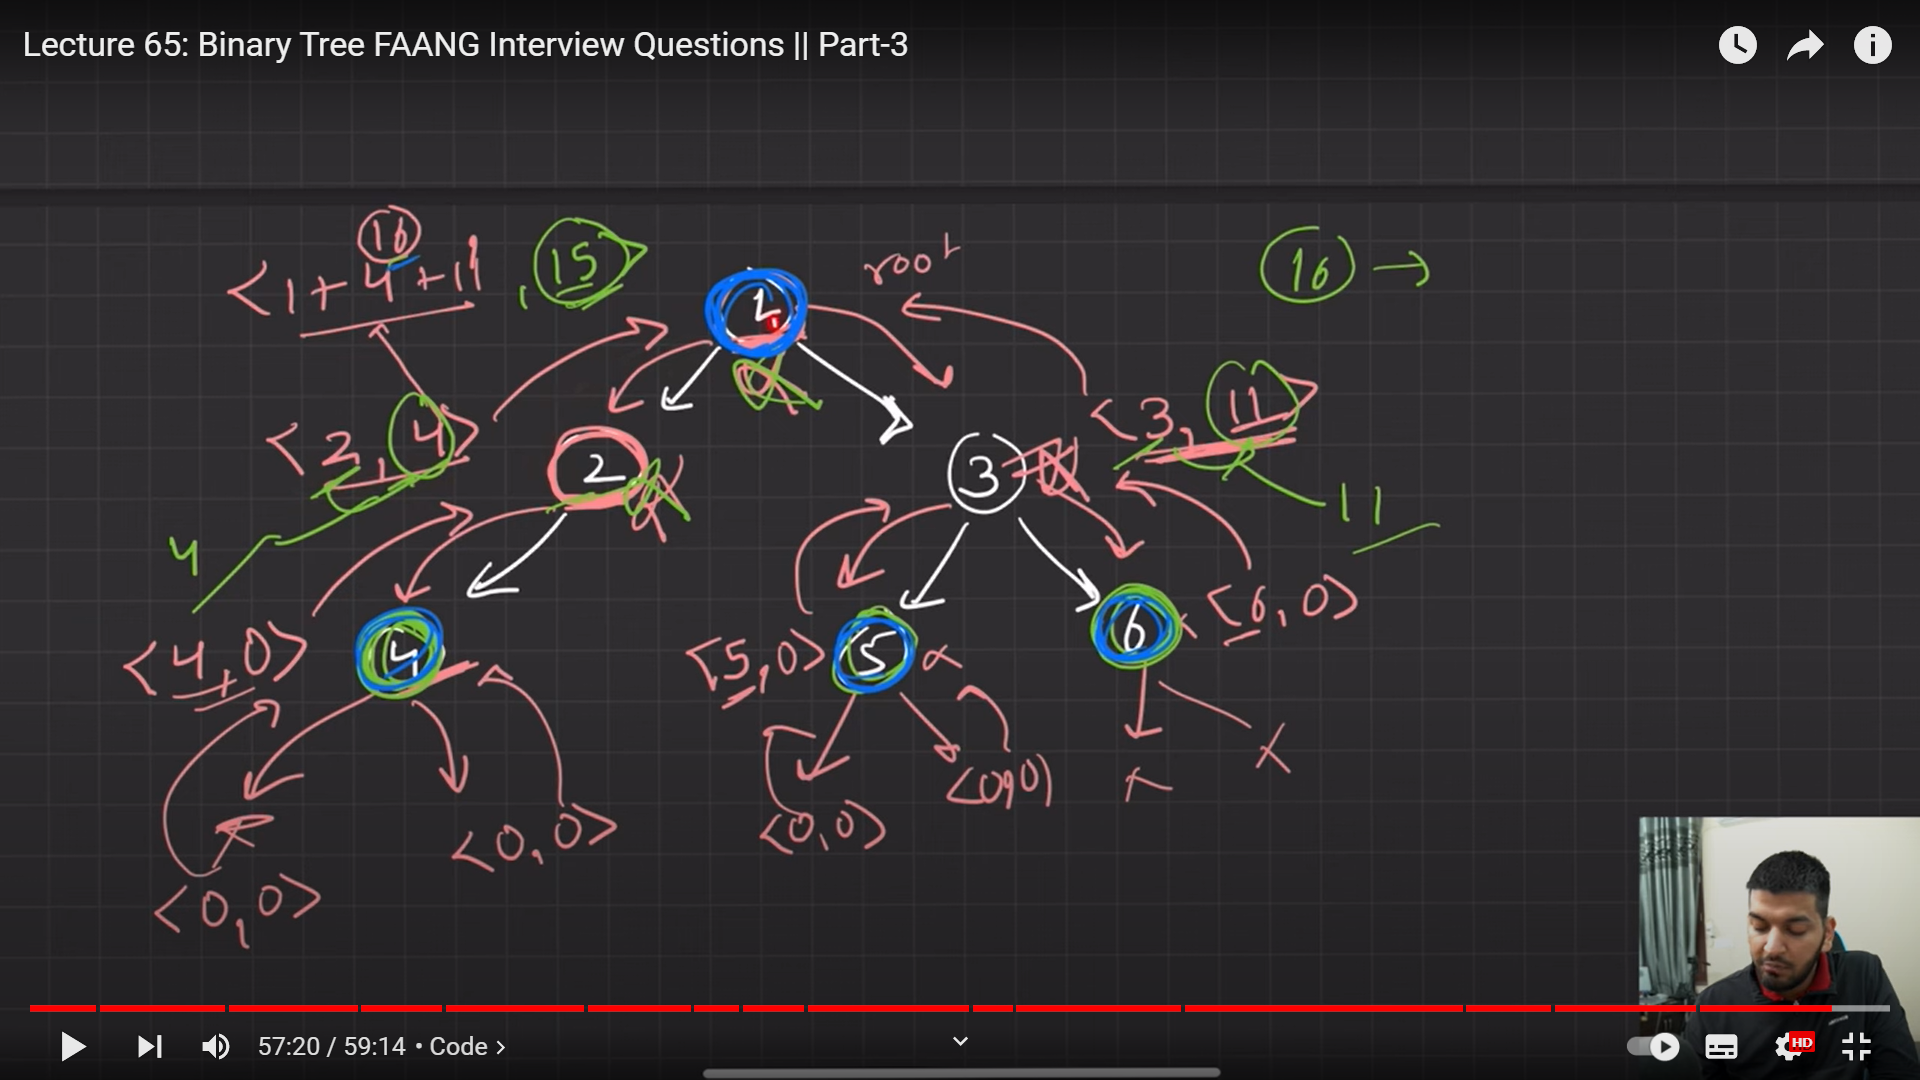 Lecture 65: Binary Tree FAANG Interview Questions || Part-3
16
<1+4+11, 15>
1
root
16 →
<2, 4>
2
3
<3, 11>
11
4
<4,0>
4
<5,0>
5
6
<6,0>
<0,0>
<0,0>
<0,0>
<0,0>
57:20 / 59:14 • Code >
HD